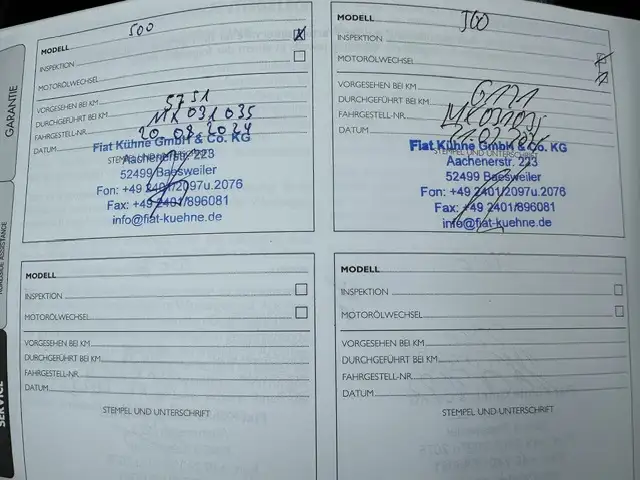 GARANTIE
ROADSIDE ASSISTANCE
SERVICE
MODELL 500
INSPEKTION
MOTORÖLWECHSEL
VORGESEHEN BEI KM
DURCHGEFÜHRT BEI KM 5751
FAHRGESTELL-NR. MK031035
DATUM 20 08 2024
STEMPEL UND UNTERSCHRIFT
Fiat Kühne GmbH & Co. KG
Aachenerstr. 223
52499 Baesweiler
Fon: +49 2401/2097u.2076
Fax: +49 2401/896081
info@fiat-kuehne.de
MODELL 500
INSPEKTION
MOTORÖLWECHSEL
VORGESEHEN BEI KM
DURCHGEFÜHRT BEI KM
FAHRGESTELL-NR.
DATUM
STEMPEL UND UNTERSCHRIFT
Fiat Kühne GmbH & Co. KG
Aachenerstr. 223
52499 Baesweiler
Fon: +49 2401/2097u.2076
Fax: +49 2401/896081
info@fiat-kuehne.de
MODELL
INSPEKTION
MOTORÖLWECHSEL
VORGESEHEN BEI KM
DURCHGEFÜHRT BEI KM
FAHRGESTELL-NR.
DATUM
STEMPEL UND UNTERSCHRIFT
MODELL
INSPEKTION
MOTORÖLWECHSEL
VORGESEHEN BEI KM
DURCHGEFÜHRT BEI KM
FAHRGESTELL-NR.
DATUM
STEMPEL UND UNTERSCHRIFT